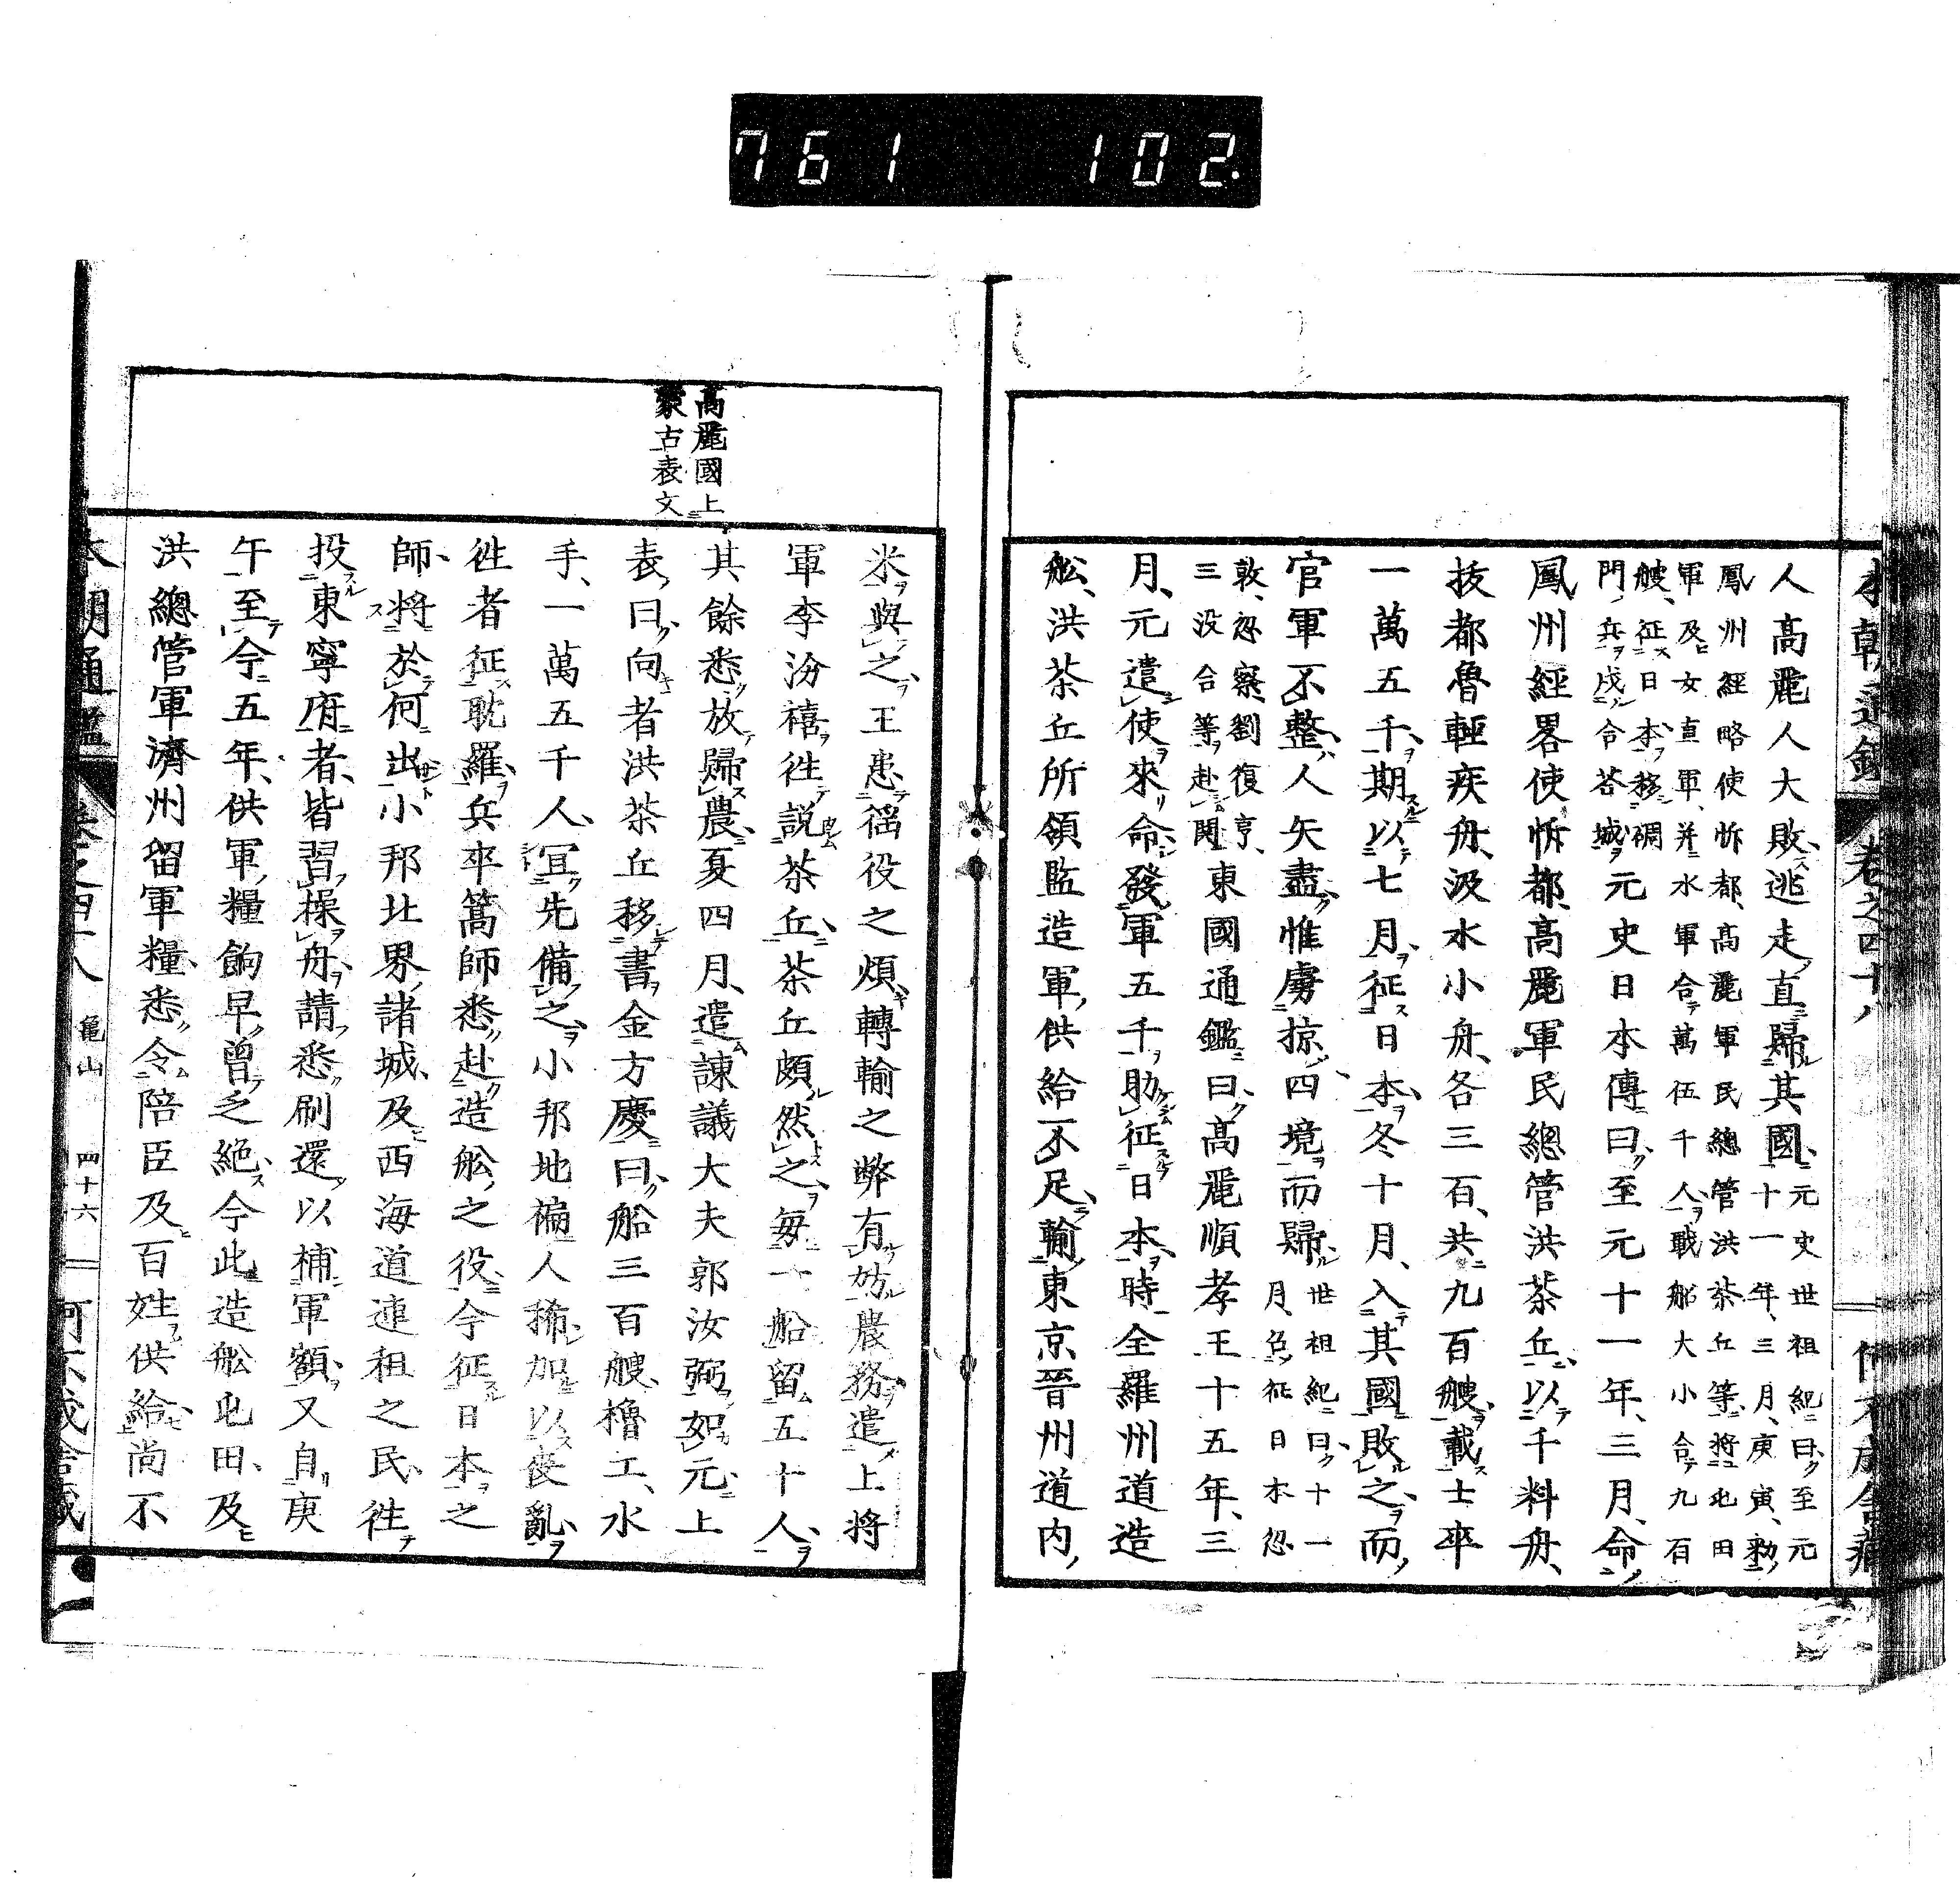 761 102.
本朝通鑑 卷之四十八
人高麗人大敗逃走直歸其國
元史世祖紀曰至元
十一年三月庚寅勅
鳳州經略使忻都高麗軍民總管洪茶丘等將屯田
軍及女直軍并水軍合萬伍千人戰船大小合九百
艘征日本移碉
門兵戍合荅城
元史日本傳曰至元十一年三月命
鳳州經畧使忻都高麗軍民總管洪茶丘以千料舟
拔都魯輕疾舟汲水小舟各三百共九百艘載士卒
一萬五千期以七月征日本冬十月入其國敗之而
官軍不整人矢盡惟虜掠四境而歸
世祖紀曰十一
月召征日本忽
敦忽察劉復亨
三没合等赴闕
東國通鑑曰高麗順孝王十五年三
月元遣使來命發軍五千助征日本時全羅州道造
舩洪茶丘所領監造軍供給不足輸東京晉州道内
米與之王患徭役之煩轉輸之弊有妨農務遣上將
軍李汾禧徃説茶丘茶丘頗然之每一船留五十人
其餘悉放歸農夏四月遣諫議大夫郭汝弼如元上
表曰向者洪茶丘移書金方慶曰船三百艘櫓工水
手一萬五千人宜先備之小邦地褊人稀加以喪亂
徃者征耽羅兵卒篙師悉赴造舩之役今征日本之
師將於何出小邦北界諸城及西海道連租之民徃
投東寧府者皆習操舟請悉刷還以補軍額又自庚
午至今五年供軍糧餉早曾乏絶今此造舩屯田及
洪總管軍濟州留軍糧悉令陪臣及百姓供給尚不
高麗國上
蒙古表文
本朝通鑑 卷之四十八 亀山 四十六